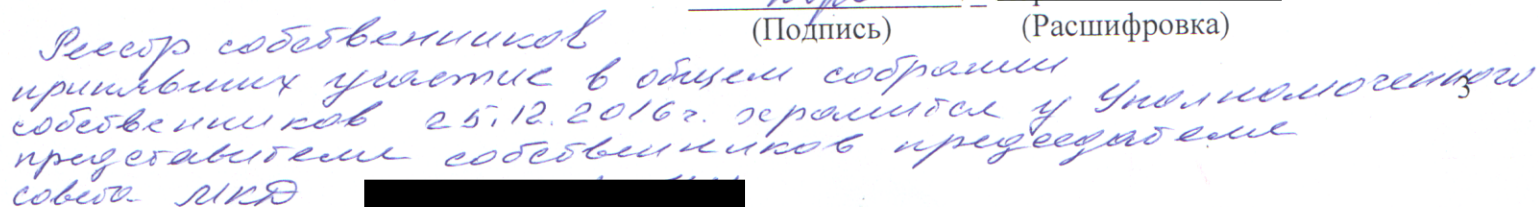 (Подпись) (Расшифровка)
Реестр собственников
принявших участие в общем собрании
собственников 25.12.2016г. хранится у Уполномоченного
3
представителя собственников председателя
совета МКД